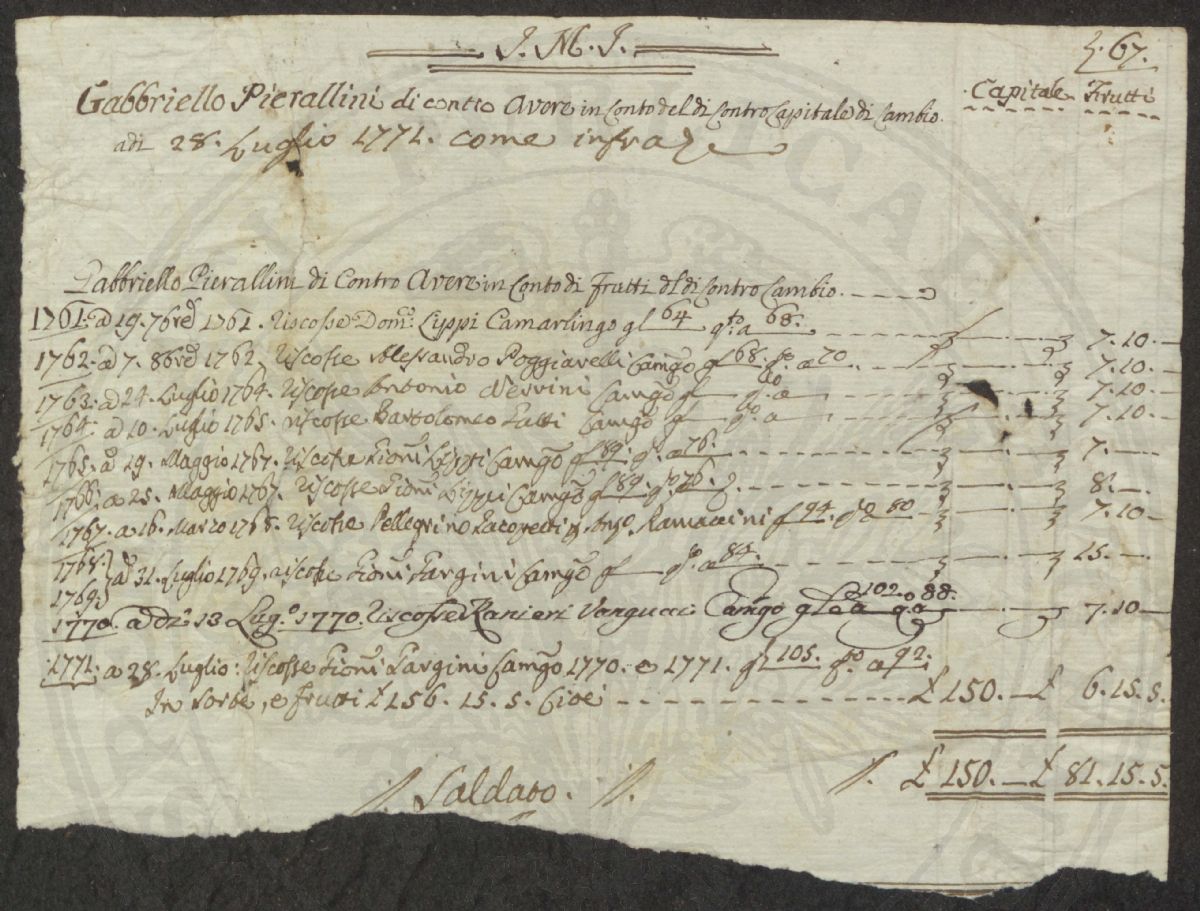 J. M. J.
67.
Capitale Frutti
Gabbriello Pierallini di contro Avere in Conto del di Contro Capitale di Cambio.
adi 28. Luglio 1771. come infra
Gabbriello Pierallini di Contro Avere in Conto di Frutti dl di Contro Cambio.
1761. a 19. 7bre 1761. Riscosse Dom: Lippi Camarlingo gl 64 qto a 68. 7.10.—
1762. a 7. 8bre 1762. Riscosse Alessandro Poggiarelli Camgo gl 68. qo a 70 7.10.—
1763. a 24. Luglio 1764. Riscosse Antonio Camgo gl qo a 7.10.—
1764. a 10. Luglio 1765. Riscosse Bartolomeo Camgo gl qo a 7.10.—
1765. a 19. Maggio 1767. Riscosse Gionni Lippi Camgo gl 89. qo a 76. 7.—
1766. a 25. Maggio 1767. Riscosse Gionni Lippi Camgo gl 89. qo 76. 8.—
1767. a 16. Marzo 1768. Riscosse Pellegrino Ramaccini gl 94 qo a 80 7.10—
1768.
1769. a 31. Luglio 1769. Riscosse Gionni Targini Camgo gl qo a 84. 15.—
1770. adi 13 Lugo 1770. Riscosse Ranieri Camgo gl a 102 qo a 88. 7.10—
1771. a 28. Luglio: Riscosse Gionni Targini Camgo 1770. e 1771. gl 105. qo a 92.
In Sorte, e Frutti £ 156. 15. 5. Cioè £ 150. — £ 6.15.5.
£ 150. — £ 81.15.5.
Saldato.